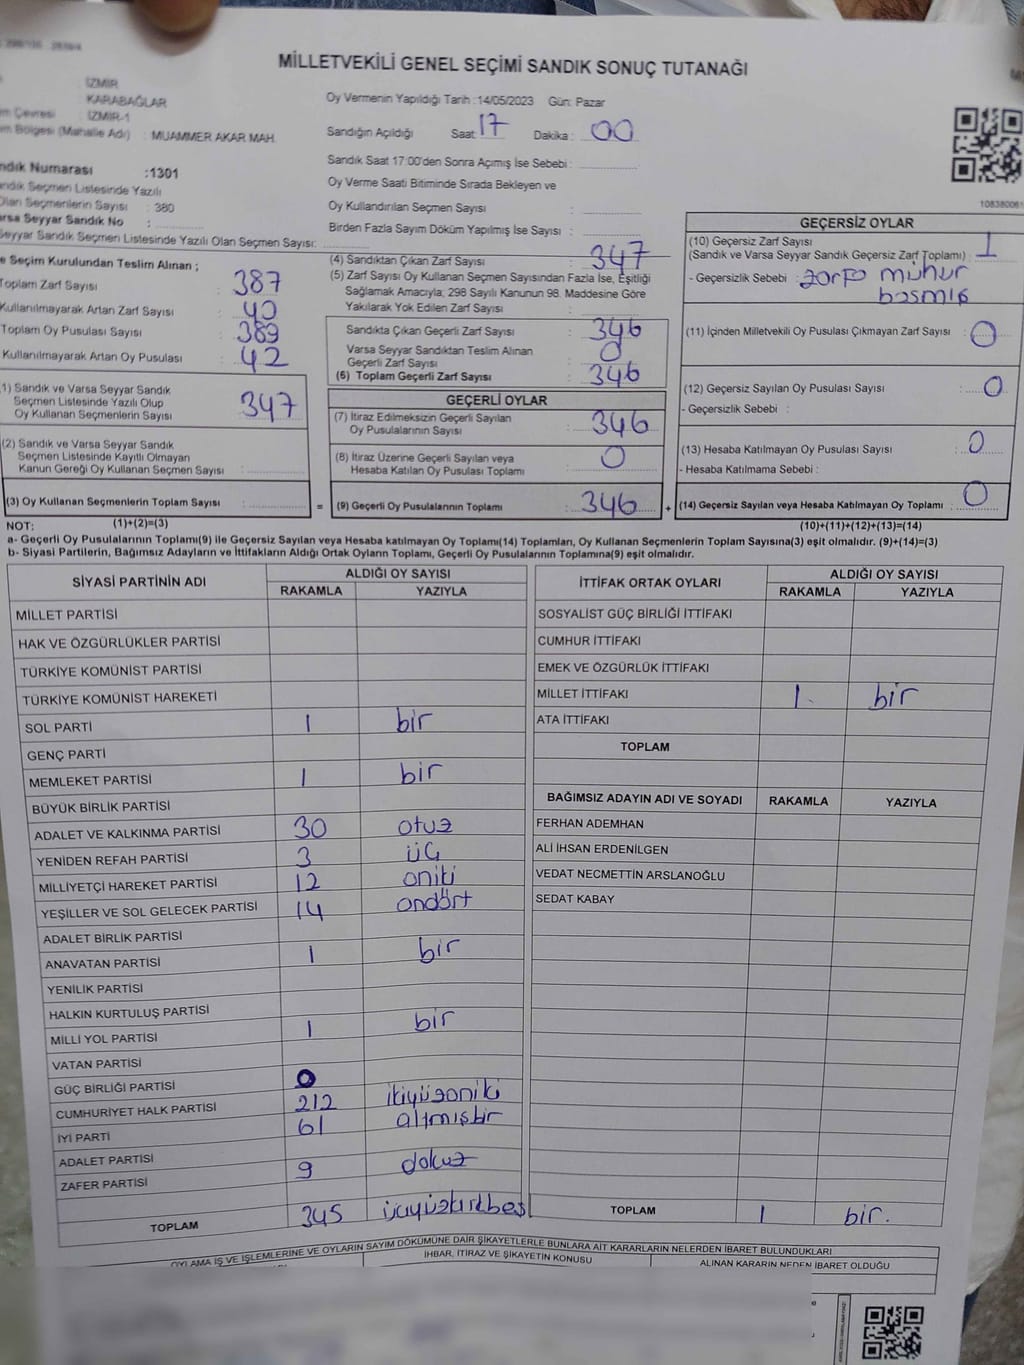 MİLLETVEKİLİ GENEL SEÇİMİ SANDIK SONUÇ TUTANAĞI
İZMİR
KARABAĞLAR
Çevresi : İZMİR-1
Bölgesi (Mahalle Adı) : MUAMMER AKAR MAH.
Oy Vermenin Yapıldığı Tarih :14/05/2023 Gün: Pazar
Sandığın Açıldığı Saat: 17 Dakika : 00
Sandık Saat 17:00'den Sonra Açımış İse Sebebi :
Oy Verme Saati Bitiminde Sırada Bekleyen ve
Oy Kullandırılan Seçmen Sayısı :
Birden Fazla Sayım Döküm Yapılmış İse Sayısı :
Numarası :1301
Seçmen Listesinde Yazılı
Olan Seçmenlerin Sayısı : 380
Varsa Seyyar Sandık No :
Seyyar Sandık Seçmen Listesinde Yazılı Olan Seçmen Sayısı:
Seçim Kurulundan Teslim Alınan ;
Toplam Zarf Sayısı : 387
Kullanılmayarak Artan Zarf Sayısı : 40
Toplam Oy Pusulası Sayısı : 389
Kullanılmayarak Artan Oy Pusulası : 42
1) Sandık ve Varsa Seyyar Sandık
Seçmen Listesinde Yazılı Olup
Oy Kullanan Seçmenlerin Sayısı : 347
(2) Sandık ve Varsa Seyyar Sandık
Seçmen Listesinde Kayıtlı Olmayan
Kanun Gereği Oy Kullanan Seçmen Sayısı :
(3) Oy Kullanan Seçmenlerin Toplam Sayısı :
(4) Sandıktan Çıkan Zarf Sayısı : 347
(5) Zarf Sayısı Oy Kullanan Seçmen Sayısından Fazla İse, Eşitliği
Sağlamak Amacıyla; 298 Sayılı Kanunun 98. Maddesine Göre
Yakılarak Yok Edilen Zarf Sayısı :
Sandıkta Çıkan Geçerli Zarf Sayısı : 346
Varsa Seyyar Sandıktan Teslim Alınan
Geçerli Zarf Sayısı : 0
(6) Toplam Geçerli Zarf Sayısı : 346
GEÇERLİ OYLAR
(7) İtiraz Edilmeksizin Geçerli Sayılan
Oy Pusulalarının Sayısı : 346
(8) İtiraz Üzerine Geçerli Sayılan veya
Hesaba Katılan Oy Pusulası Toplamı : 0
= (9) Geçerli Oy Pusulalarının Toplamı : 346 +
GEÇERSİZ OYLAR
(10) Geçersiz Zarf Sayısı
(Sandık ve Varsa Seyyar Sandık Geçersiz Zarf Toplamı) : 1
- Geçersizlik Sebebi : zarfa mühür
basmış
(11) İçinden Milletvekili Oy Pusulası Çıkmayan Zarf Sayısı : 0
(12) Geçersiz Sayılan Oy Pusulası Sayısı : 0
- Geçersizlik Sebebi :
(13) Hesaba Katılmayan Oy Pusulası Sayısı : 0
- Hesaba Katılmama Sebebi :
(14) Geçersiz Sayılan veya Hesaba Katılmayan Oy Toplamı : 0
NOT: (1)+(2)=(3) (10)+(11)+(12)+(13)=(14)
a- Geçerli Oy Pusulalarının Toplamı(9) ile Geçersiz Sayılan veya Hesaba katılmayan Oy Toplamı(14) Toplamları, Oy Kullanan Seçmenlerin Toplam Sayısına(3) eşit olmalıdır. (9)+(14)=(3)
b- Siyasi Partilerin, Bağımsız Adayların ve İttifakların Aldığı Ortak Oyların Toplamı, Geçerli Oy Pusulalarının Toplamına(9) eşit olmalıdır.
SİYASİ PARTİNİN ADI ALDIĞI OY SAYISI
RAKAMLA YAZIYLA
MİLLET PARTİSİ
HAK VE ÖZGÜRLÜKLER PARTİSİ
TÜRKİYE KOMÜNİST PARTİSİ
TÜRKİYE KOMÜNİST HAREKETİ
SOL PARTİ 1 bir
GENÇ PARTİ
MEMLEKET PARTİSİ 1 bir
BÜYÜK BİRLİK PARTİSİ
ADALET VE KALKINMA PARTİSİ 30 otuz
YENİDEN REFAH PARTİSİ 3 üç
MİLLİYETÇİ HAREKET PARTİSİ 12 oniki
YEŞİLLER VE SOL GELECEK PARTİSİ 14 ondört
ADALET BİRLİK PARTİSİ
ANAVATAN PARTİSİ 1 bir
YENİLİK PARTİSİ
HALKIN KURTULUŞ PARTİSİ
MİLLİ YOL PARTİSİ 1 bir
VATAN PARTİSİ
GÜÇ BİRLİĞİ PARTİSİ 0
CUMHURİYET HALK PARTİSİ 212 ikiyüzoniki
İYİ PARTİ 61 altmışbir
ADALET PARTİSİ
ZAFER PARTİSİ 9 dokuz
TOPLAM 345 üçyüzkırkbeş
İTTİFAK ORTAK OYLARI ALDIĞI OY SAYISI
RAKAMLA YAZIYLA
SOSYALİST GÜÇ BİRLİĞİ İTTİFAKI
CUMHUR İTTİFAKI
EMEK VE ÖZGÜRLÜK İTTİFAKI
MİLLET İTTİFAKI 1. bir
ATA İTTİFAKI
TOPLAM
BAĞIMSIZ ADAYIN ADI VE SOYADI RAKAMLA YAZIYLA
FERHAN ADEMHAN
ALİ İHSAN ERDENİLGEN
VEDAT NECMETTİN ARSLANOĞLU
SEDAT KABAY
TOPLAM 1 bir.
OYLAMA İŞ VE İŞLEMLERİNE VE OYLARIN SAYIM DÖKÜMÜNE DAİR ŞİKAYETLERLE BUNLARA AİT KARARLARIN NELERDEN İBARET BULUNDUKLARI
İHBAR, İTİRAZ VE ŞİKAYETİN KONUSU
ALINAN KARARIN NEDEN İBARET OLDUĞU